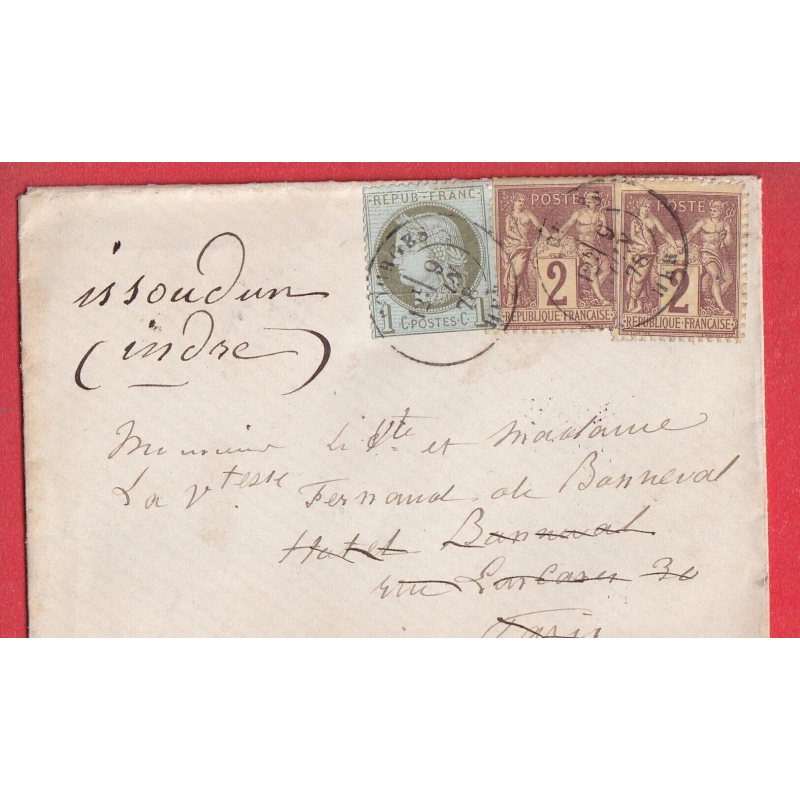 REPUB·FRANC·
1 C·POSTES·C· 1
POSTE
2
REPUBLIQUE FRANÇAISE
POSTE
2
REPUBLIQUE FRANÇAISE
issoudun
(indre)
Monsieur le Vte et Madame
La Vtesse Fernand de Banneval
Hotel Banneval
rue Las Cases 30
Paris